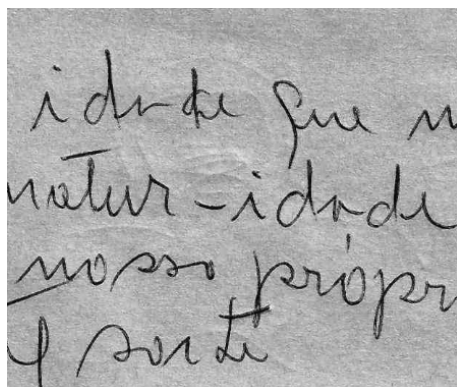 idade que n
natur-idade
nosso própr
e sorte